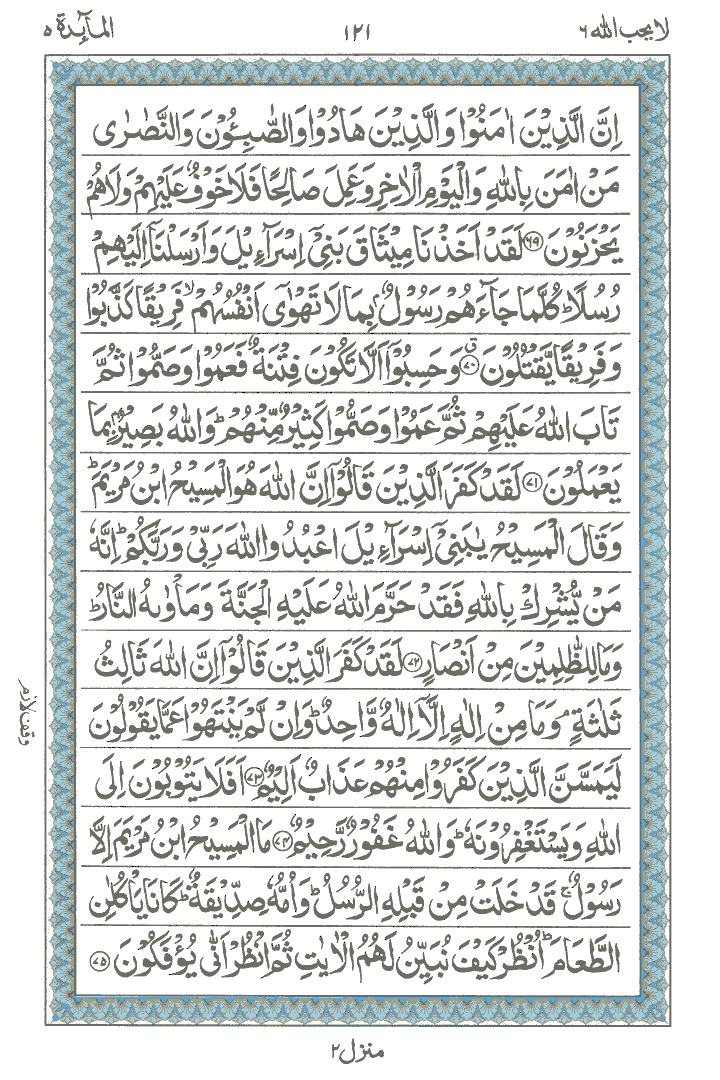 لا يحب الله ٦ ١٢١ المآئدة ٥
اِنَّ الَّذِيْنَ اٰمَنُوْا وَالَّذِيْنَ هَادُوْا وَالصّٰبِـُٔوْنَ وَالنَّصٰرٰى
مَنْ اٰمَنَ بِاللّٰهِ وَالْيَوْمِ الْاٰخِرِ وَعَمِلَ صَالِحًا فَلَا خَوْفٌ عَلَيْهِمْ وَلَا هُمْ
يَحْزَنُوْنَ ﴿٦٩﴾ لَقَدْ اَخَذْنَا مِيْثَاقَ بَنِيْٓ اِسْرَآءِيْلَ وَاَرْسَلْنَآ اِلَيْهِمْ
رُسُلًا ؕ كُلَّمَا جَآءَهُمْ رَسُوْلٌۢ بِمَا لَا تَهْوٰٓى اَنْفُسُهُمْ ۙ فَرِيْقًا كَذَّبُوْا
وَفَرِيْقًا يَّقْتُلُوْنَ ﴿٧٠﴾ ۗ وَحَسِبُوْٓا اَلَّا تَكُوْنَ فِتْنَةٌ فَعَمُوْا وَصَمُّوْا ثُمَّ
تَابَ اللّٰهُ عَلَيْهِمْ ثُمَّ عَمُوْا وَصَمُّوْا كَثِيْرٌ مِّنْهُمْ ؕ وَاللّٰهُ بَصِيْرٌۢ بِمَا
يَعْمَلُوْنَ ﴿٧١﴾ لَقَدْ كَفَرَ الَّذِيْنَ قَالُوْٓا اِنَّ اللّٰهَ هُوَ الْمَسِيْحُ ابْنُ مَرْيَمَ ؕ
وَقَالَ الْمَسِيْحُ يٰبَنِيْٓ اِسْرَآءِيْلَ اعْبُدُوا اللّٰهَ رَبِّيْ وَرَبَّكُمْ ؕ اِنَّهٗ
مَنْ يُّشْرِكْ بِاللّٰهِ فَقَدْ حَرَّمَ اللّٰهُ عَلَيْهِ الْجَنَّةَ وَمَاْوٰىهُ النَّارُ ؕ
وَمَا لِلظّٰلِمِيْنَ مِنْ اَنْصَارٍ ﴿٧٢﴾ لَقَدْ كَفَرَ الَّذِيْنَ قَالُوْٓا اِنَّ اللّٰهَ ثَالِثُ
ثَلٰثَةٍ ۘ وَمَا مِنْ اِلٰهٍ اِلَّآ اِلٰهٌ وَّاحِدٌ ؕ وَاِنْ لَّمْ يَنْتَهُوْا عَمَّا يَقُوْلُوْنَ
وقف لازم
لَيَمَسَّنَّ الَّذِيْنَ كَفَرُوْا مِنْهُمْ عَذَابٌ اَلِيْمٌ ﴿٧٣﴾ اَفَلَا يَتُوْبُوْنَ اِلَى
اللّٰهِ وَيَسْتَغْفِرُوْنَهٗ ؕ وَاللّٰهُ غَفُوْرٌ رَّحِيْمٌ ﴿٧٤﴾ مَا الْمَسِيْحُ ابْنُ مَرْيَمَ اِلَّا
رَسُوْلٌ ۚ قَدْ خَلَتْ مِنْ قَبْلِهِ الرُّسُلُ ؕ وَاُمُّهٗ صِدِّيْقَةٌ ؕ كَانَا يَاْكُلٰنِ
الطَّعَامَ ؕ اُنْظُرْ كَيْفَ نُبَيِّنُ لَهُمُ الْاٰيٰتِ ثُمَّ انْظُرْ اَنّٰى يُؤْفَكُوْنَ ﴿٧٥﴾
منزل ٢